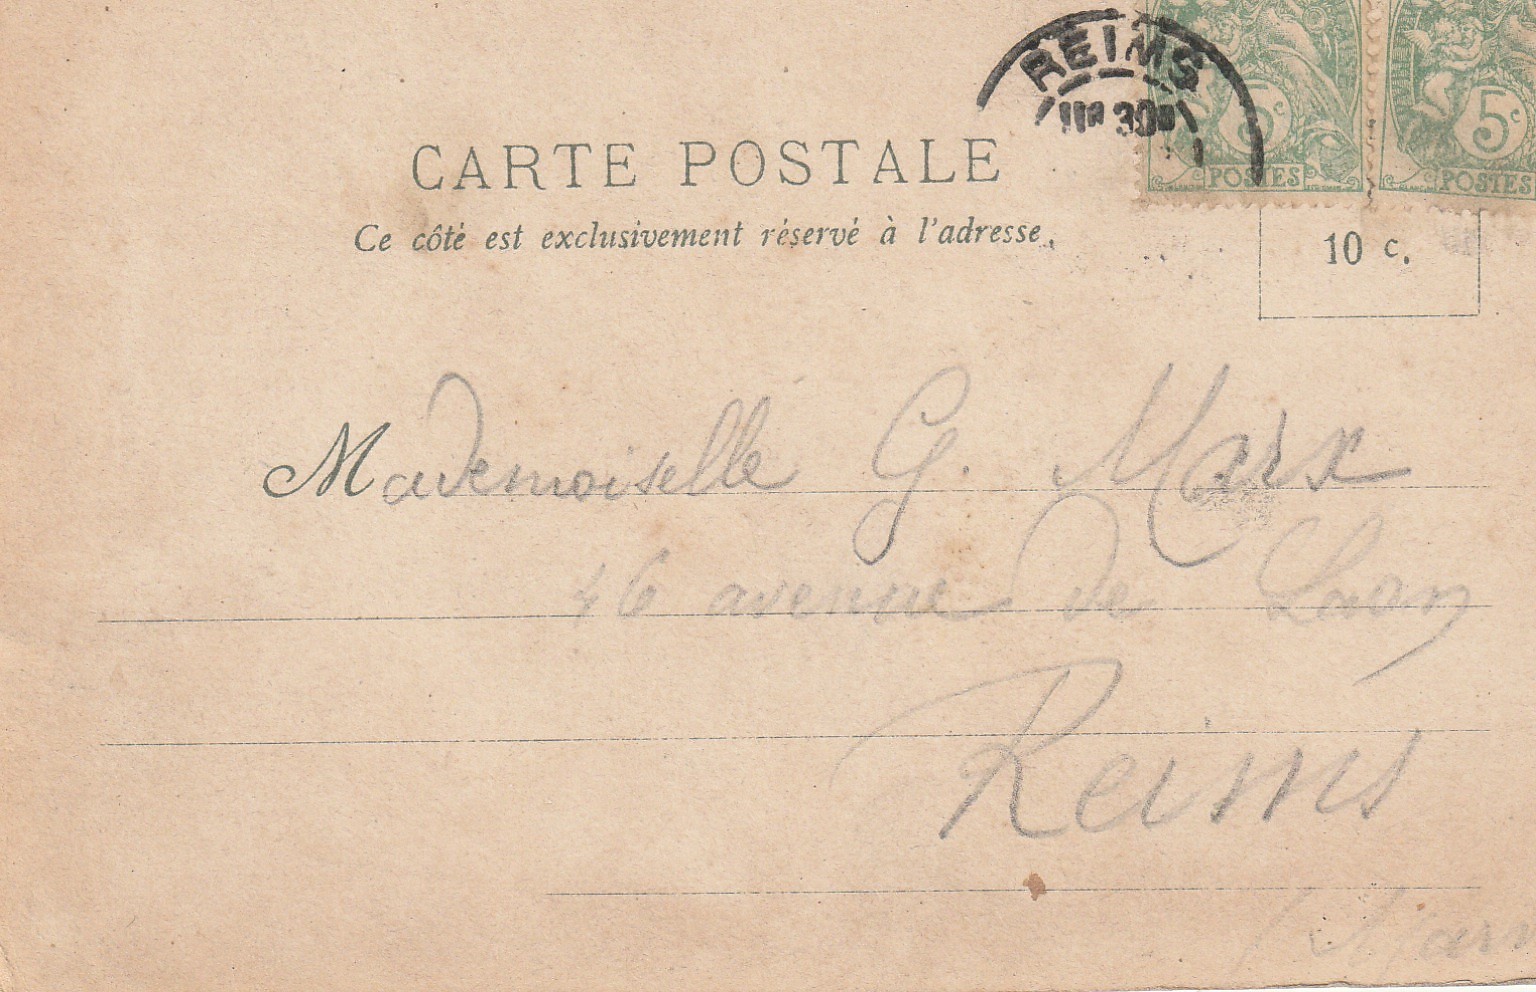 REIMS
5c 5c
POSTES POSTES
CARTE POSTALE
Ce côté est exclusivement réservé à l'adresse.
10 c.
Mademoiselle G. Marx
46 avenue de Laon
Reims
(Marn